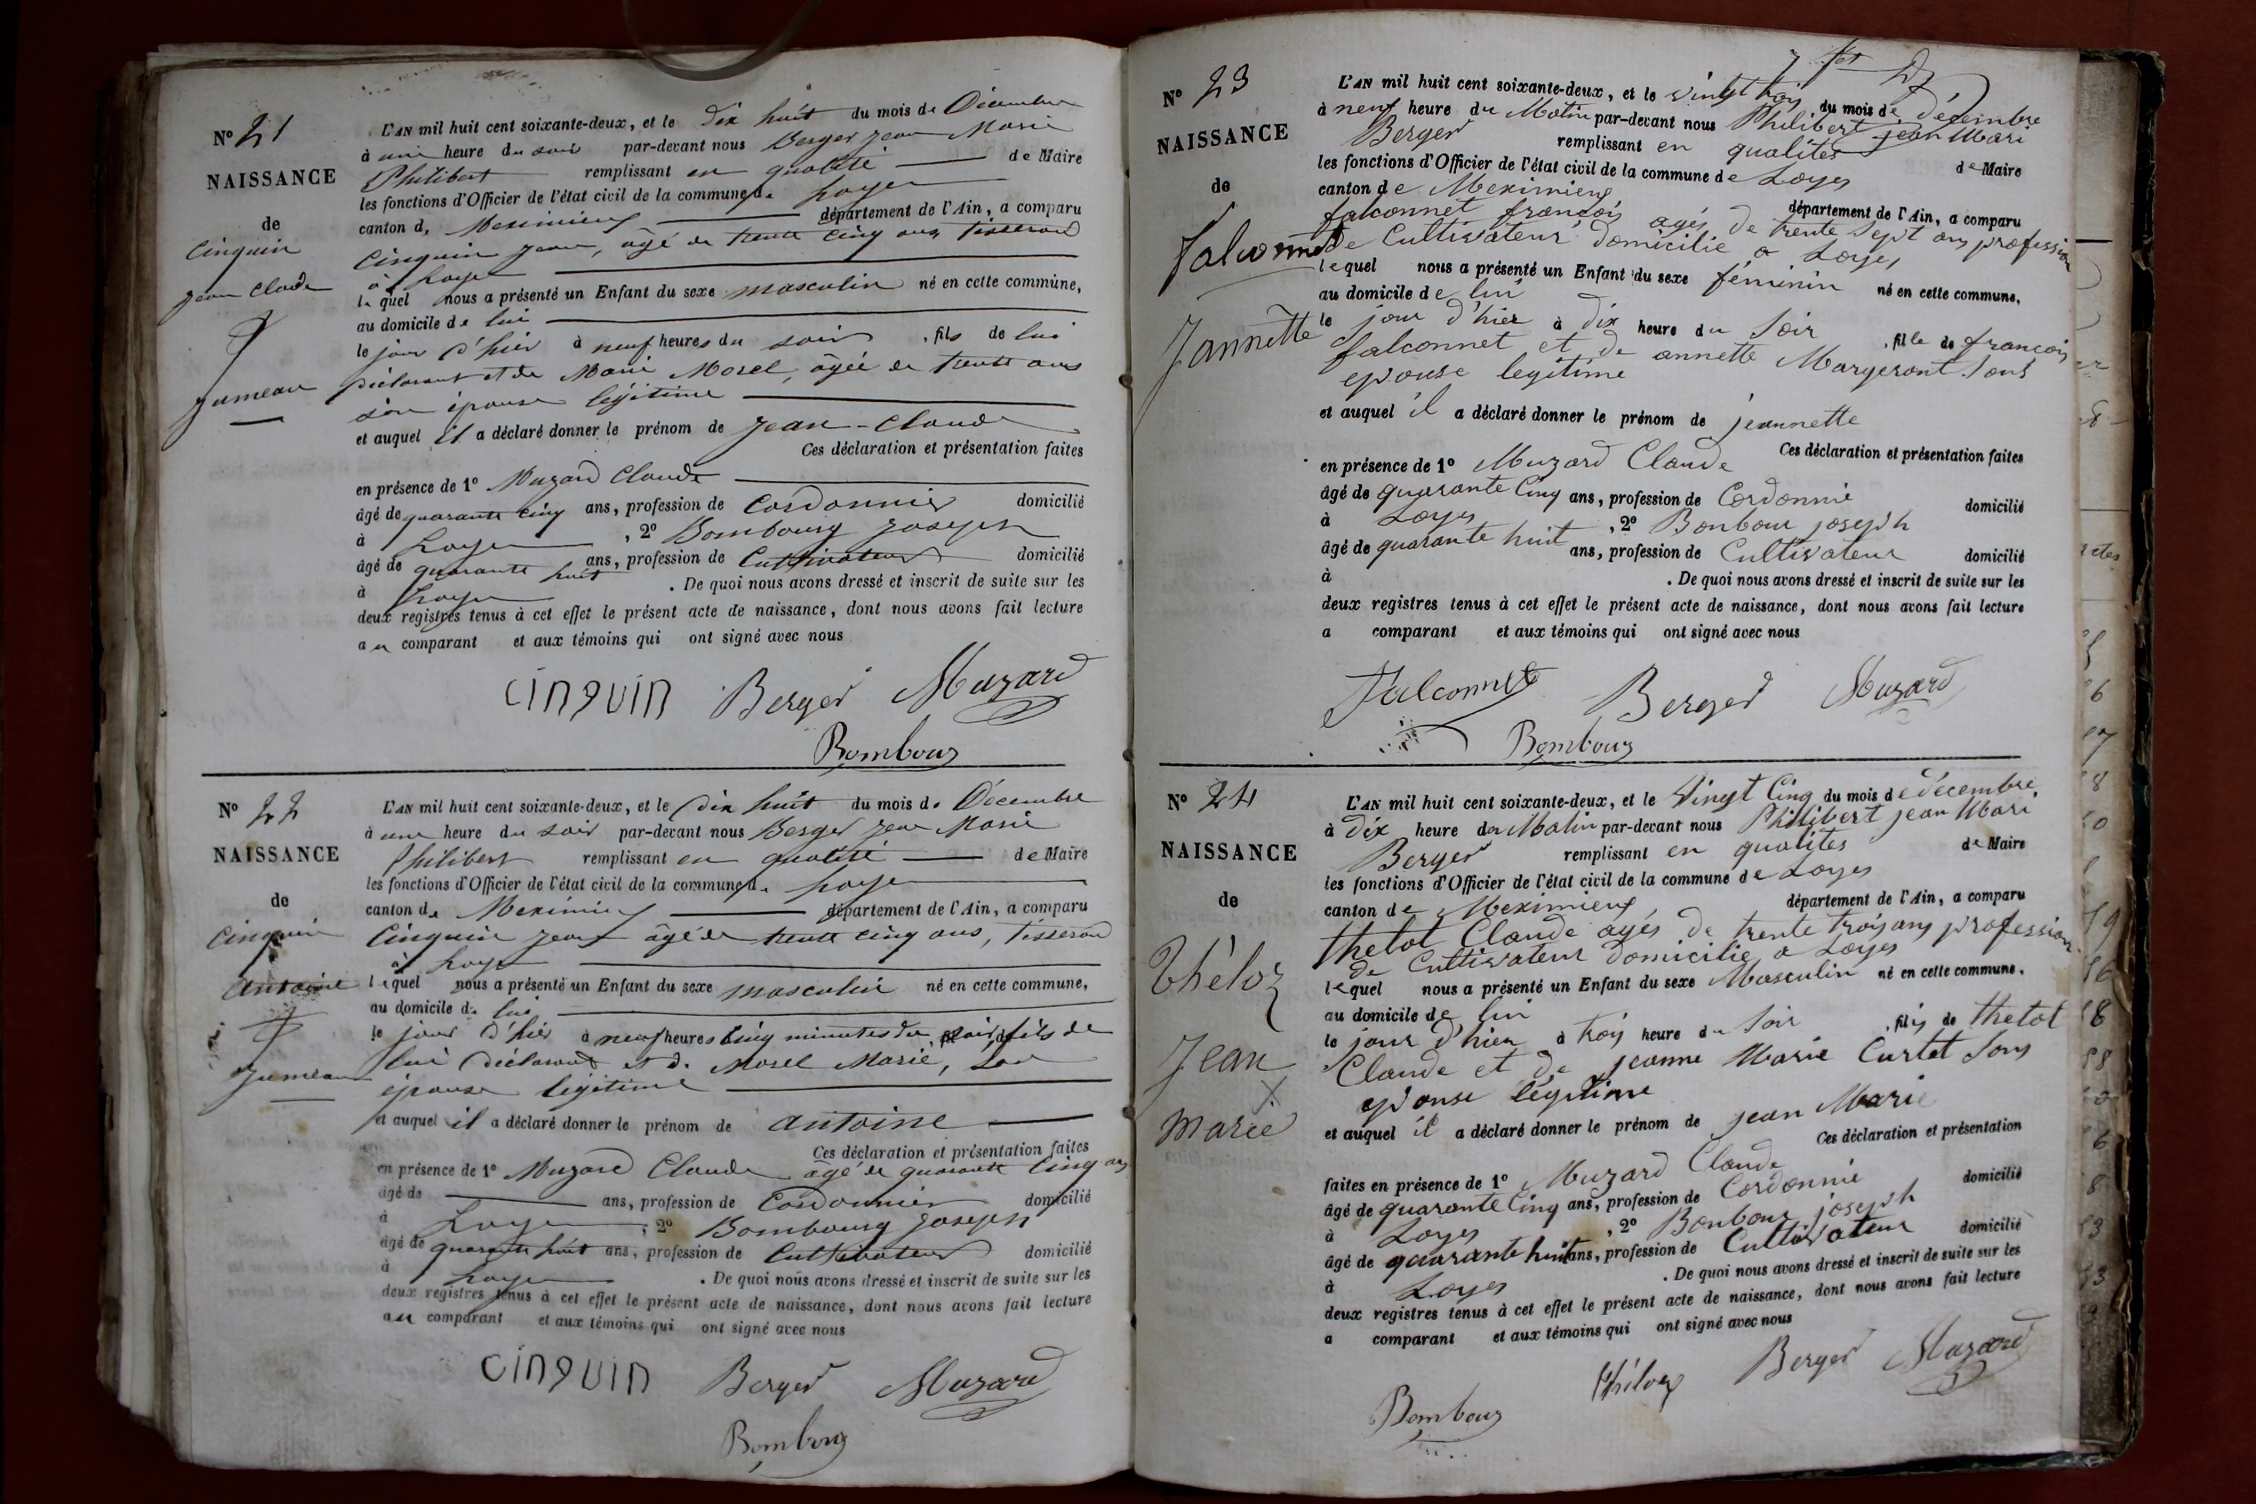 N° 21
NAISSANCE
de
Cinquin
Jean Claude
Jumeau
L'AN mil huit cent soixante-deux, et le dix huit du mois de Décembre
à une heure du soir par-devant nous Berger Jean Marie
Philibert remplissant en qualité de Maire
les fonctions d'Officier de l'état civil de la commune de Loyes
canton de Meximieux département de l'Ain, a comparu
Cinquin Jean, âgé de trente cinq ans, tisserand
à Loyes
lequel nous a présenté un Enfant du sexe masculin né en cette commune,
au domicile de lui
le jour d'hier à neuf heures du soir, fils de lui
déclarant et de Marie Morel, âgée de trente ans
son épouse légitime
et auquel il a déclaré donner le prénom de Jean-Claude
Ces déclaration et présentation faites
en présence de 1° Muzard Claude
âgé de quarante cinq ans, profession de Cordonnier domicilié
à Loyes, 2° Bombourg Joseph
âgé de quarante huit ans, profession de Cultivateur domicilié
à Loyes. De quoi nous avons dressé et inscrit de suite sur les
deux registres tenus à cet effet le présent acte de naissance, dont nous avons fait lecture
au comparant et aux témoins qui ont signé avec nous
cinquin Berger Muzard
Bombour
N° 22
NAISSANCE
de
Cinquin
Antoine
Jumeau
L'AN mil huit cent soixante-deux, et le dix huit du mois de Décembre
à une heure du soir par-devant nous Berger Jean Marie
Philibert remplissant en qualité de Maire
les fonctions d'Officier de l'état civil de la commune de Loyes
canton de Meximieux département de l'Ain, a comparu
Cinquin Jean âgé de trente cinq ans, tisserand
à Loyes
lequel nous a présenté un Enfant du sexe masculin né en cette commune,
au domicile de lui
le jour d'hier à neuf heures cinq minutes du soir, fils de
lui déclarant et de Morel Marie, son
épouse légitime
et auquel il a déclaré donner le prénom de antoine
Ces déclaration et présentation faites
en présence de 1° Muzard Claude âgé de quarante cinq ans
âgé de ans, profession de Cordonnier domicilié
à Loyes, 2° Bombourg Joseph
âgé de quarante huit ans, profession de Cultivateur domicilié
à Loyes. De quoi nous avons dressé et inscrit de suite sur les
deux registres tenus à cet effet le présent acte de naissance, dont nous avons fait lecture
au comparant et aux témoins qui ont signé avec nous
cinquin Berger Muzard
Bombour
N° 23
NAISSANCE
de
Falconnet
Jannette
L'AN mil huit cent soixante-deux, et le vingt trois du mois de décembre
à neuf heure du Matin par-devant nous Philibert jean Mari
Berger remplissant en qualités de Maire
les fonctions d'Officier de l'état civil de la commune de Loyes
canton de Meximieux département de l'Ain, a comparu
falconnet françois agés de trente sept ans profession
de Cultivateur domicilie a Loyes
lequel nous a présenté un Enfant du sexe féminin né en cette commune,
au domicile de lui
le jour d'hier à dix heure du Soir, fille de françois
falconnet et de annette Margeront Sons
epouse legitime
et auquel il a déclaré donner le prénom de jeannette
Ces déclaration et présentation faites
en présence de 1° Muzard Claude
âgé de quarante Cinq ans, profession de Cordonnie domicilié
à Loyes, 2° Bonbour joseph
âgé de quarante huit ans, profession de Cultivateur domicilié
à . De quoi nous avons dressé et inscrit de suite sur les
deux registres tenus à cet effet le présent acte de naissance, dont nous avons fait lecture
a comparant et aux témoins qui ont signé avec nous
Falconnet Berger Muzard
Bombour
N° 24
NAISSANCE
de
Théloz
Jean
X
Marie
L'AN mil huit cent soixante-deux, et le Vingt Cinq du mois de décembre
à dix heure du Matin par-devant nous Philibert jean Mari
Berger remplissant en qualites de Maire
les fonctions d'Officier de l'état civil de la commune de Loyes
canton de Meximieux, département de l'Ain, a comparu
thetot Claude agés de trente trois ans profession
de Cultivateur domicilie a Loyes
lequel nous a présenté un Enfant du sexe Masculin né en cette commune,
au domicile de lui
le jour d'hier à trois heure du Soir, filis de thetot
Claude et de jeanne Marie Curtet Sons
epouse légitime
et auquel il a déclaré donner le prénom de jean Marie
Ces déclaration et présentation
faites en présence de 1° Muzard Claude
âgé de quarante Cinq ans, profession de Cordonnie domicilié
à Loyes, 2° Bonbour joseph
âgé de quarante huit ans, profession de Cultivateur domicilié
à Loyes. De quoi nous avons dressé et inscrit de suite sur les
deux registres tenus à cet effet le présent acte de naissance, dont nous avons fait lecture
a comparant et aux témoins qui ont signé avec nous
Théloz Berger Muzard
Bombour